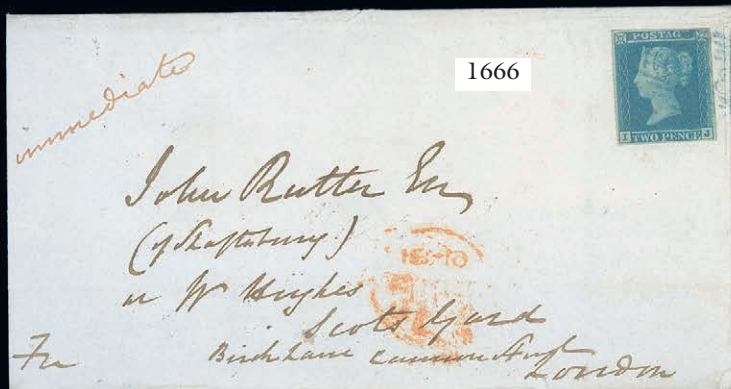 immediate
1666
POSTAGE
I J
TWO PENCE
John Rutter Esq
(of Shaftsbury)
or Wm Hughes
Scots Yard
Bush Lane Cannon Street
London